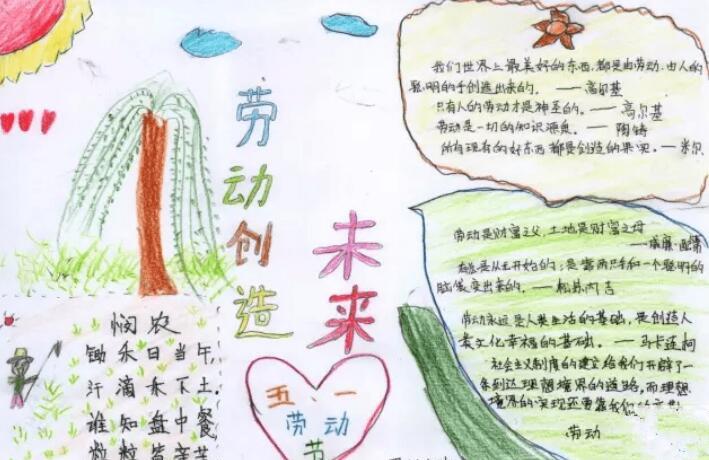 劳动创造
未来
我们世界上最美好的东西,都是由劳动、由人的
聪明的手创造出来的。——高尔基
只有人的劳动才是神圣的。——高尔基
劳动是一切的知识源泉。——陶铸
所有现有的好东西都是创造的果实。——米尔
劳动是财富之父,土地是财富之母
——威廉·配第
是从王开始的;是靠两只手和一个聪明的
脑袋变出来的。——松苏内吉
劳动永远是人类生活的基础,是创造人
类文化幸福的基础。——马卡连柯
社会主义制度的建立给我们开辟了一
条到达理想境界的道路,而理想
境界的实现还要靠我们的辛勤
劳动
悯农
锄禾日当午,
汗滴禾下土。
谁知盘中餐,
粒粒皆辛苦
五、一
劳动
节